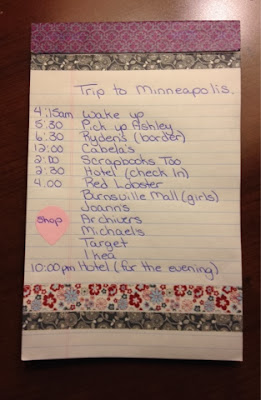 Trip to Minneapolis.
4:15am Wake up
5:30 Pick up Ashley
6:30 Ryden's (border)
12:00 Cabela's
2:00 Scrapbooks Too
2:30 Hotel (check In)
4:00 Red Lobster
Burnsville Mall (girls)
Joann's
shop Archivers
Michaels
Target
Ikea
10:00pm Hotel (for the evening)